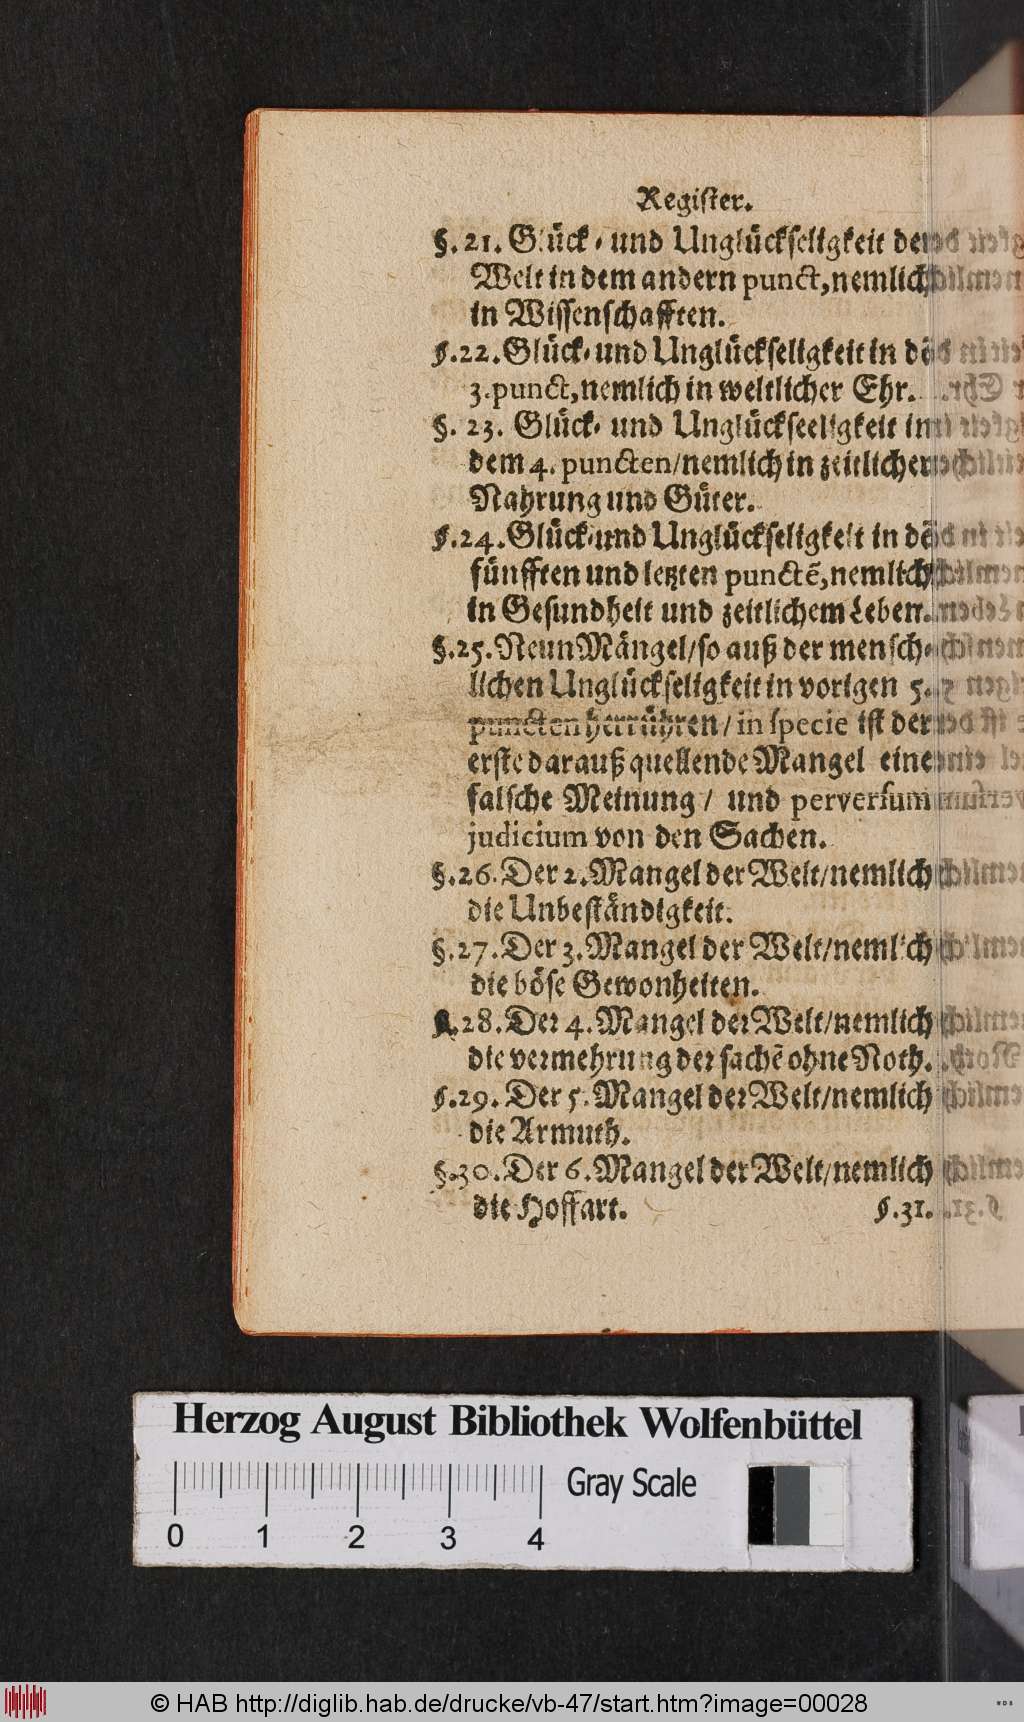 Register.
§. 21. Glück- und Unglückseligkeit der
Welt in dem andern punct, nemlich
in Wissenschafften.
§. 22. Glück- und Unglückseligkeit in dē
3. punct, nemlich in weltlicher Ehr.
§. 23. Glück- und Unglückseeligkeit in
dem 4. puncten/ nemlich in zeitlicher
Nahrung und Güter.
§. 24. Glück- und Unglückseligkeit in dē
fünfften und letzten punctē, nemlich
in Gesundheit und zeitlichem Leben.
§. 25. Neun Mängel/ so auß der mensch-
lichen Unglückseligkeit in vorigen 5.
puncten herrühren/ in specie ist der
erste darauß quellende Mangel eine
falsche Meinung/ und perversum
judicium von den Sachen.
§. 26. Der 2. Mangel der Welt/ nemlich
die Unbeständigkeit.
§. 27. Der 3. Mangel der Welt/ nemlich
die böse Gewonheiten.
§. 28. Der 4. Mangel der Welt/ nemlich
die vermehrung der sachē ohne Noth.
§. 29. Der 5. Mangel der Welt/ nemlich
die Armuth.
§. 30. Der 6. Mangel der Welt/ nemlich
die Hoffart.
§. 31.
Herzog August Bibliothek Wolfenbüttel
Gray Scale
0 1 2 3 4
© HAB http://diglib.hab.de/drucke/vb-47/start.htm?image=00028